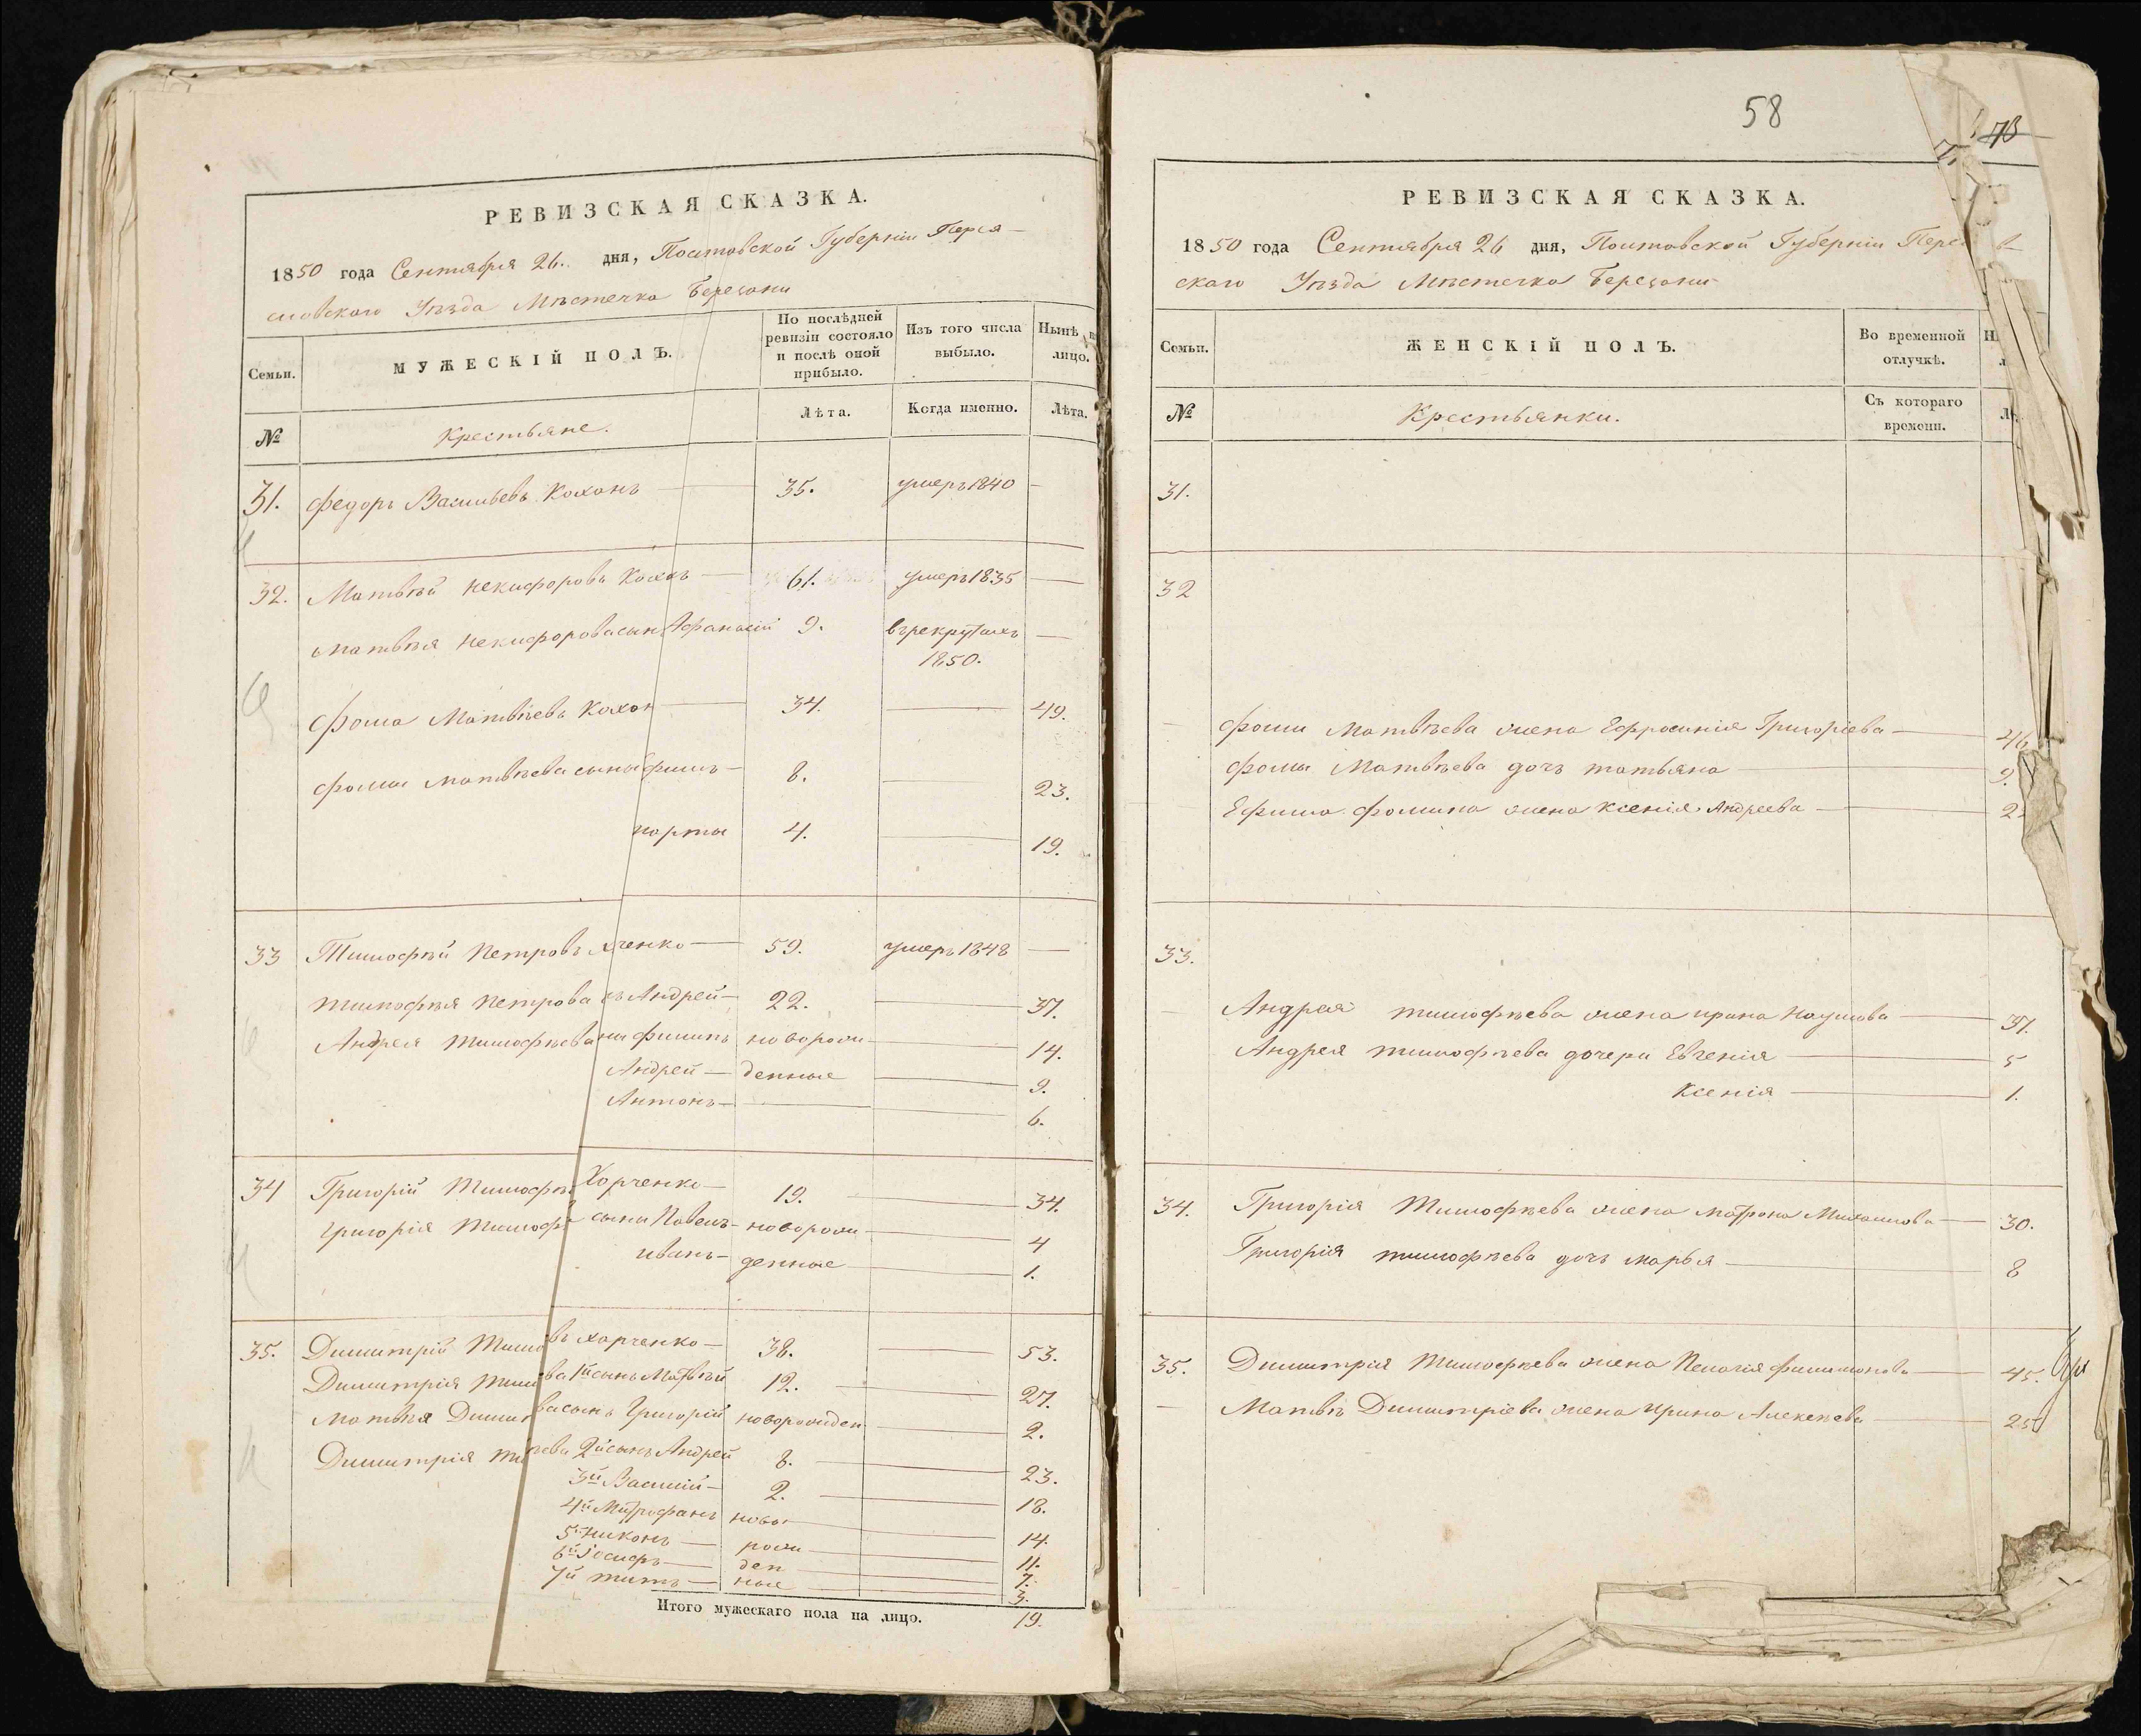 РЕВИЗСКАЯ СКАЗКА.
1850 года Сентября 26. дня, Полтавской Губерніи Перея-
словского Уѣзда Мѣстечка Березани
Семьи.
МУЖЕСКІЙ ПОЛЪ.
По послѣдней ревизіи состояло и послѣ оной прибыло.
Изъ того числа выбыло.
Нынѣ на лицо.
№
Крестьяне.
Лѣта.
Когда именно.
Лѣта.
31. Федоръ Васильевъ Коханъ 35. умеръ 1840 —
32. Матвѣй Некифоровъ 61. умеръ 1835 —
Матвѣя Некифорова сынъ Афанасій 9. въ рекрутахъ —
1850.
Фома Матвѣевъ Кохан 34. — 49.
Фомы Матвѣева сыны 8. — 23.
4. — 19.
33 Тимофѣй Петровъ ченко — 59. умеръ 1848 —
Тимофѣя Петрова Андрей — 22. — 37.
Андрея Тимофѣева Филипъ новорож — 14.
Андрей — денные — 9.
Антонъ — 6.
34 Григорій Тимофѣ Харченко — 19. — 34.
Григорія Тимоф сыны Павелъ — новорож — 4
Иванъ — денные — 1.
35. Димитрій Тимо въ Харченко — 38. — 53.
Димитрія Тимо ва 1й сынъ Матвѣй 12. — 27.
Матвѣя Димит ва сынъ Григорій новорожден — 2.
Димитрія Ти ѣева 2й сынъ Андрей 8. — 23.
3й Василій — 2. — 18.
4й Митрофанъ ново — 14.
5й Никонъ — рож — 11.
6й Іосифъ — ден — 7.
7й Титъ — ные — 3.
Итого мужескаго пола на лицо. 19.
58
РЕВИЗСКАЯ СКАЗКА.
1850 года Сентября 26 дня, Полтавской Губерніи Пере
скаго Уѣзда Мѣстечка Березани
Семьи.
ЖЕНСКІЙ ПОЛЪ.
Во временной отлучкѣ.
№
Крестьянки.
Съ котораго времени.
31.
32
Фомы Матвѣева жена Ефросинія Григоріева — 46
Фомы Матвѣева дочь Татьяна — 9.
Ефима Фомина жена Ксенія Андреева — 2
33.
Андрея Тимофѣева жена Ирина Наумова — 37.
Андрея Тимофѣева дочери Евгенія — 5
Ксенія — 1.
34. Григорія Тимофѣева жена Матрона Михайлова — 30.
Григорія Тимофѣева дочь Марья — 8
35. Димитрія Тимофѣева жена Пелагія Филимонова — 45.
— Матвѣ Димитріева жена Ирина Алексѣева — 25